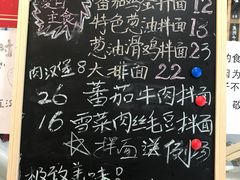 复可
主食
番茄鸡蛋拌面 12
特色葱油拌面 13
葱油滑鸡拌面 23
肉汉堡8 大排面 22
26 番茄牛肉拌面
16 雪菜肉丝毛豆拌面
拌面送例汤
极致美味!